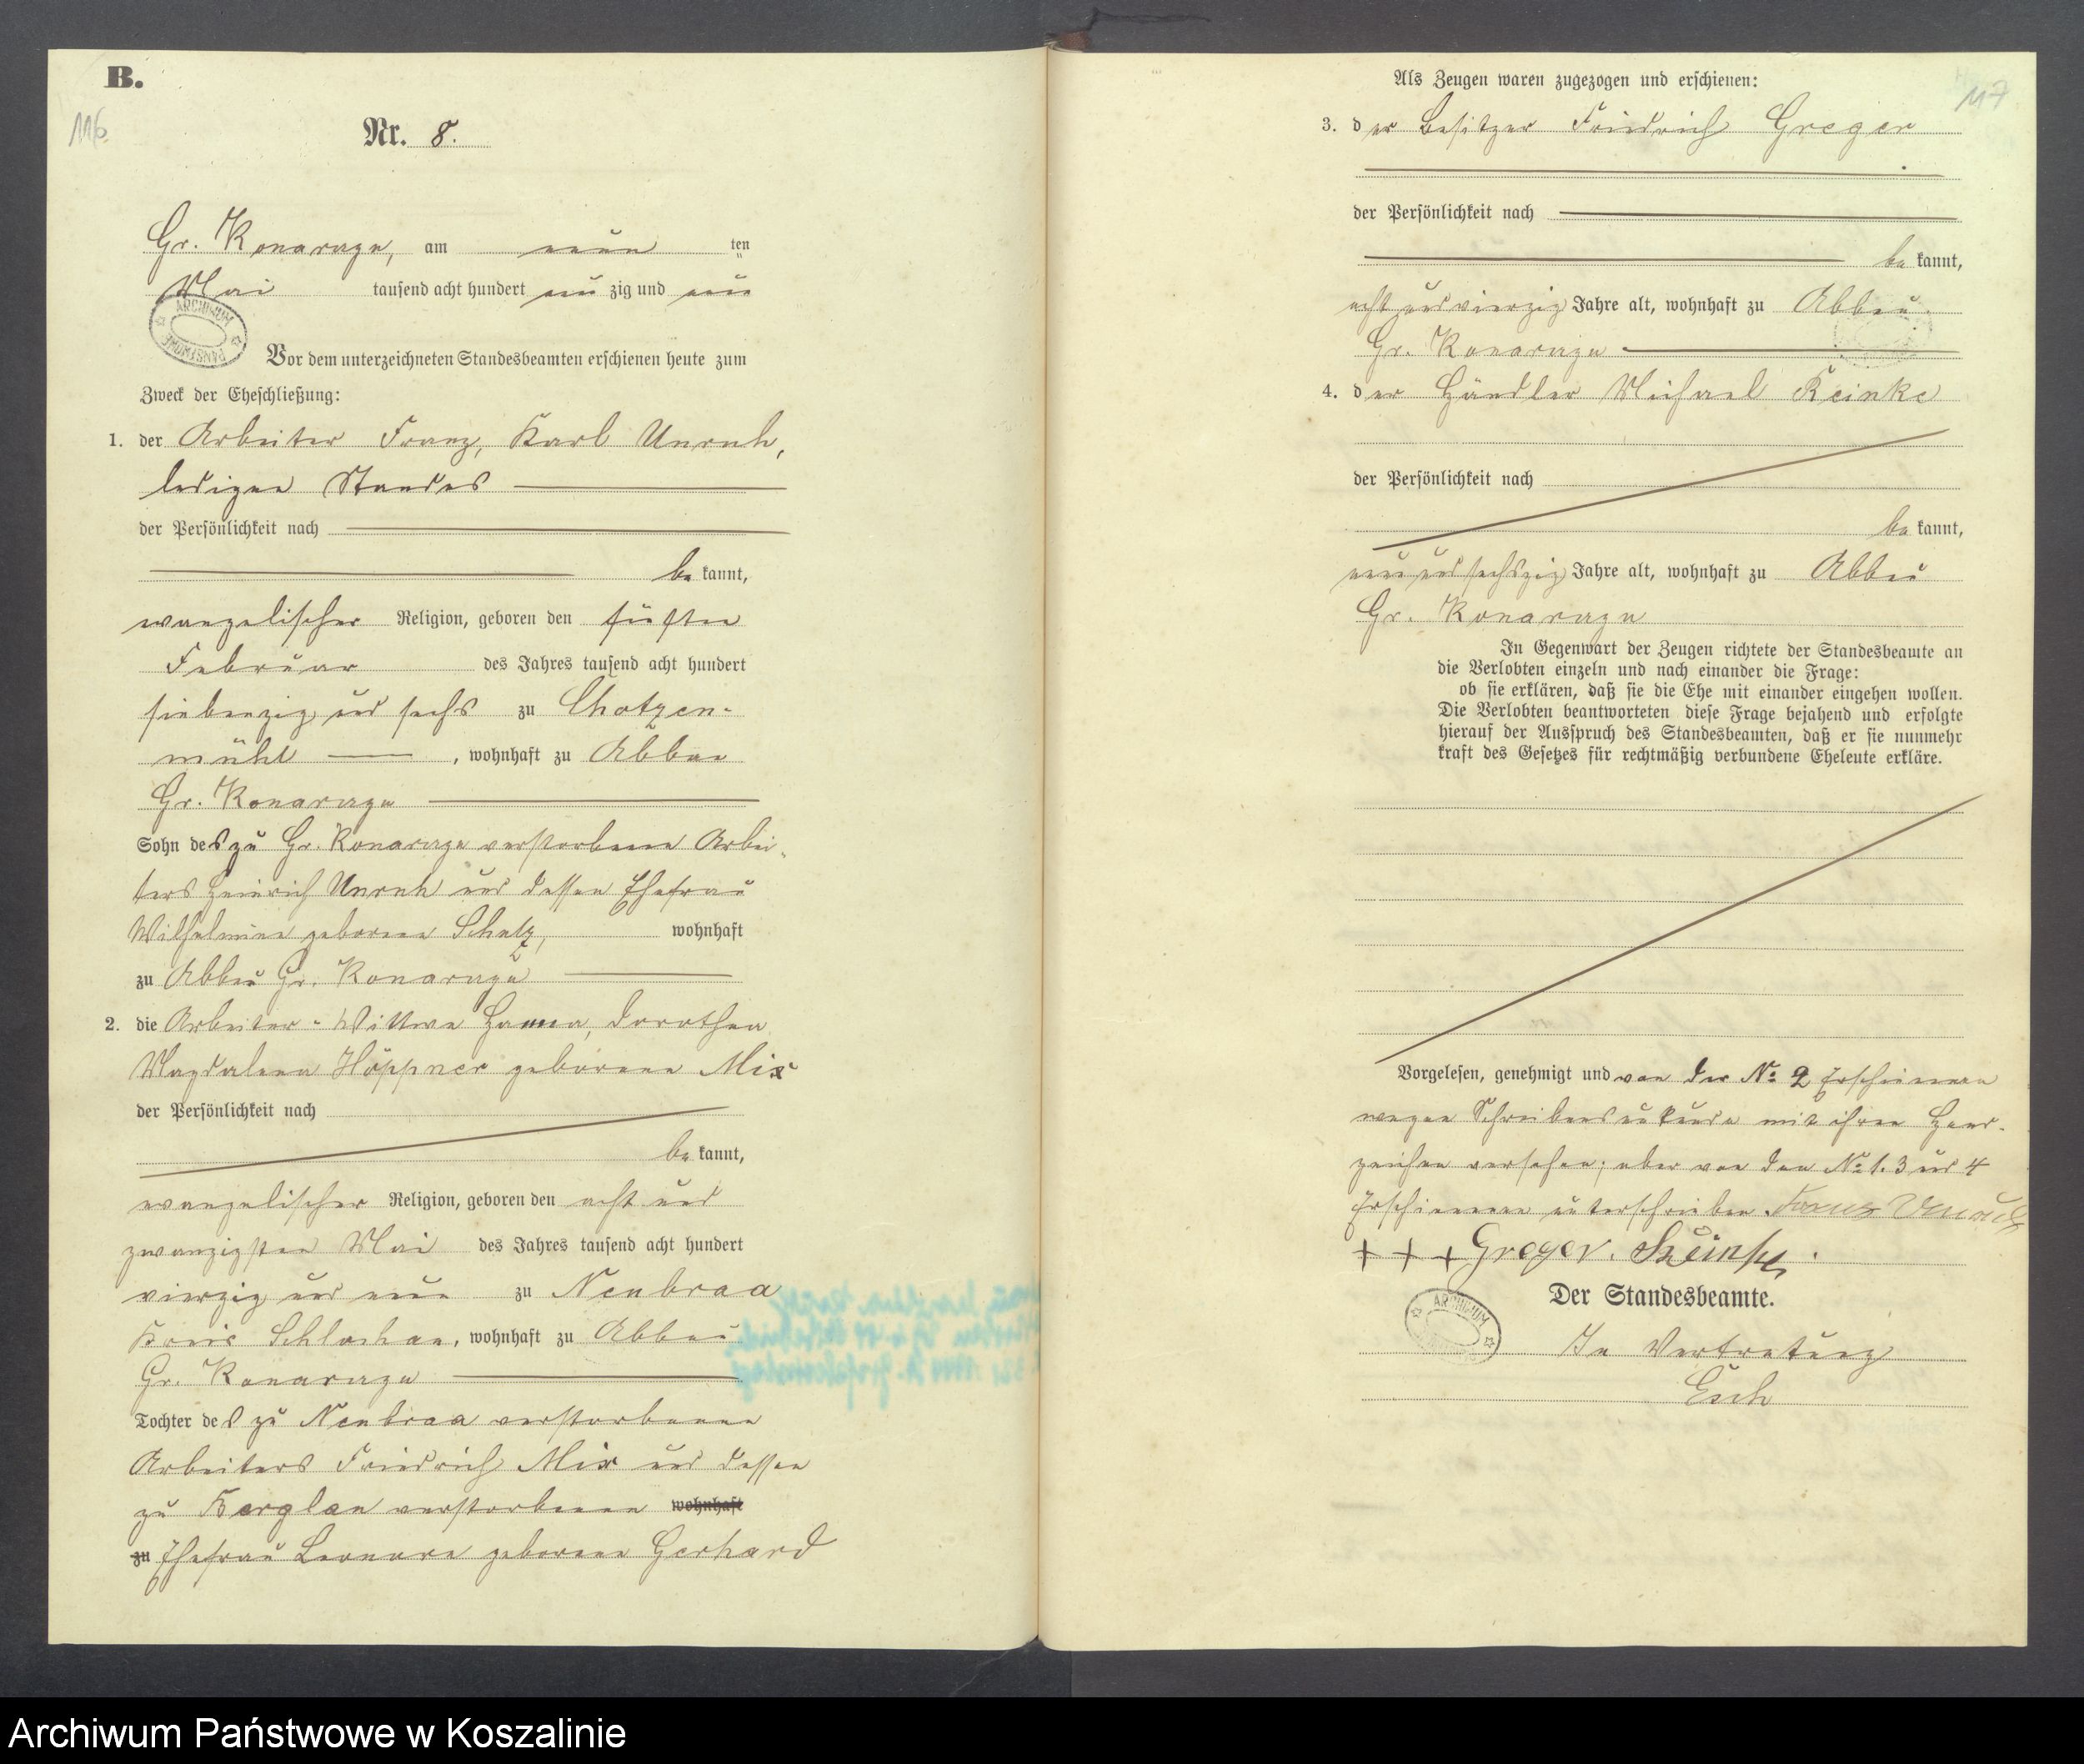 B.
116.
Nr. 8.
Gr. Konarczyn, am neun ten
Mai tausend acht hundert neun zig und neun
ARCHIWUM PAŃSTWOWE
Vor dem unterzeichneten Standesbeamten erschienen heute zum
Zweck der Eheschließung:
1. der Arbeiter Franz, Karl Unruh,
ledigen Standes
der Persönlichkeit nach
be kannt,
evangelischer Religion, geboren den fünften
Februar des Jahres tausend acht hundert
siebenzig und sechs zu Chotzen-
mühl, wohnhaft zu Abbau
Gr. Konarczyn
Sohn des zu Gr. Konarczyn verstorbenen Arbei-
ters Heinrich Unruh und dessen Ehefrau
Wilhelmine geborene Schulz, wohnhaft
zu Abbau Gr. Konarczyn
2. die Arbeiter-Wittwe Hanna, Dorothea
Magdalena Höppner geborene Mix
der Persönlichkeit nach
be kannt,
evangelischer Religion, geboren den acht und
zwanzigsten Mai des Jahres tausend acht hundert
vierzig und neun zu Neubraa
Kreis Schlochau, wohnhaft zu Abbau
Gr. Konarczyn
Tochter des zu Neubraa verstorbenen
Arbeiters Friedrich Mix und dessen
zu Berglau verstorbenen wohnhaft
zu Ehefrau Leonore geborene Gerhard
117
Als Zeugen waren zugezogen und erschienen:
3. der Besitzer Friedrich Greger
der Persönlichkeit nach
be kannt,
acht und vierzig Jahre alt, wohnhaft zu Abbau
Gr. Konarczyn
4. der Händler Michael Reinke
der Persönlichkeit nach
be kannt,
neun und sechszig Jahre alt, wohnhaft zu Abbau
Gr. Konarczyn
In Gegenwart der Zeugen richtete der Standesbeamte an
die Verlobten einzeln und nach einander die Frage:
ob sie erklären, daß sie die Ehe mit einander eingehen wollen.
Die Verlobten beantworteten diese Frage bejahend und erfolgte
hierauf der Ausspruch des Standesbeamten, daß er sie nunmehr
kraft des Gesetzes für rechtmäßig verbundene Eheleute erkläre.
Vorgelesen, genehmigt und von der No 2 Erschienenen
wegen Schreibensunkunde mit ihren Hand-
zeichen versehen; aber von den No 1. 3 und 4
Erschienenen unterschrieben. Franz Unruh
+ + + Greger. Reinke.
Der Standesbeamte.
ARCHIWUM
In Vertretung
Esch
Archiwum Państwowe w Koszalinie